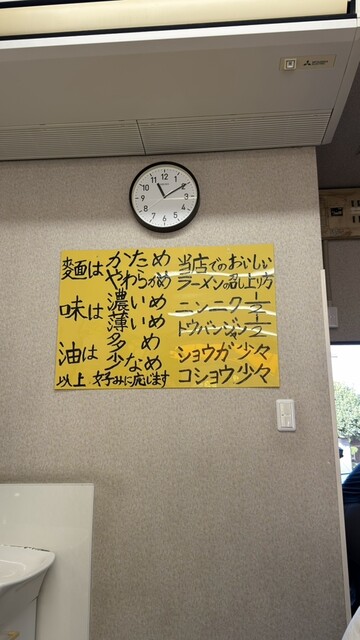 麺は かため
やわらかめ
味は 濃いめ
薄いめ
油は 多め
少なめ
以上 好みに応じます
当店でのおいしい
ラーメンの召し上り方
ニンニク 1/2
トウバンジャン 1/2
ショウガ少々
コショウ少々
12 1 2 3 4 5 6 7 8 9 10 11